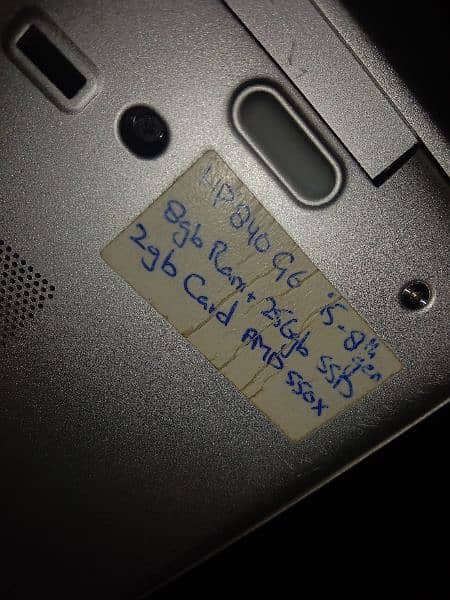 HP 840 G6 i5-8th gen
8gb Ram + 256gb SSD
2gb Card AMD 550x